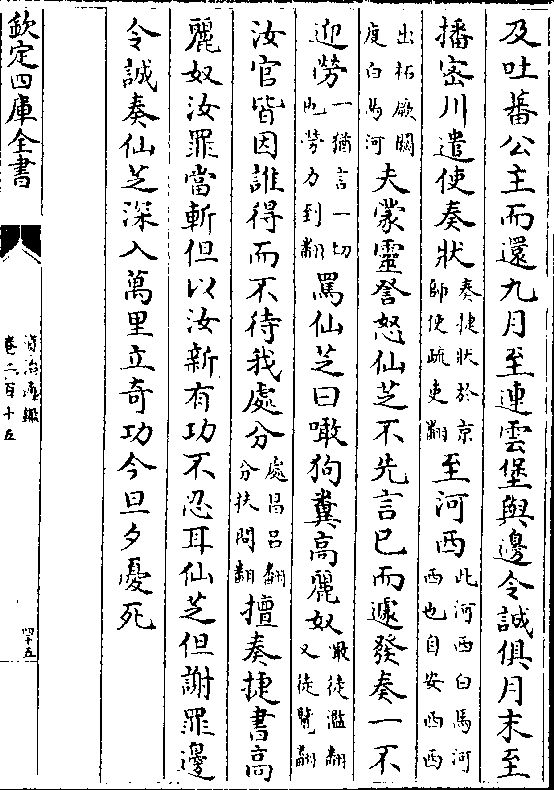 及吐蕃公主而還九月至連雲堡與邊令誠俱月末至
播密川遣使奏狀奏捷狀於京師使疏吏翻至河西此河西白馬河西也自安西西
出柘厥關度白馬河夫蒙靈詧怒仙芝不先言已而遽發奏一不
迎勞一猶言一切也勞力到翻罵仙芝曰噉狗糞高麗奴噉徒濫翻又徒覽翻
汝官皆因誰得而不待我處分處昌呂翻分扶問翻擅奏捷書高
麗奴汝罪當斬但以汝新有功不忍耳仙芝但謝罪邊
令誠奏仙芝深入萬里立奇功今旦夕憂死
欽定四庫全書
資治通鑑
卷二百十五
四十五